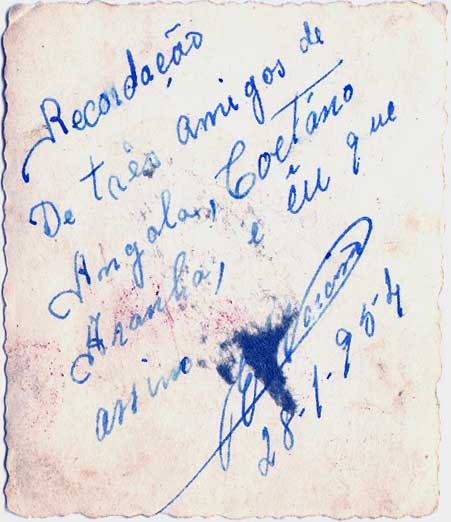 Recordação
De três amigos de
Angola, Coetáno
Aranha, e êu que
assino
28-1-954